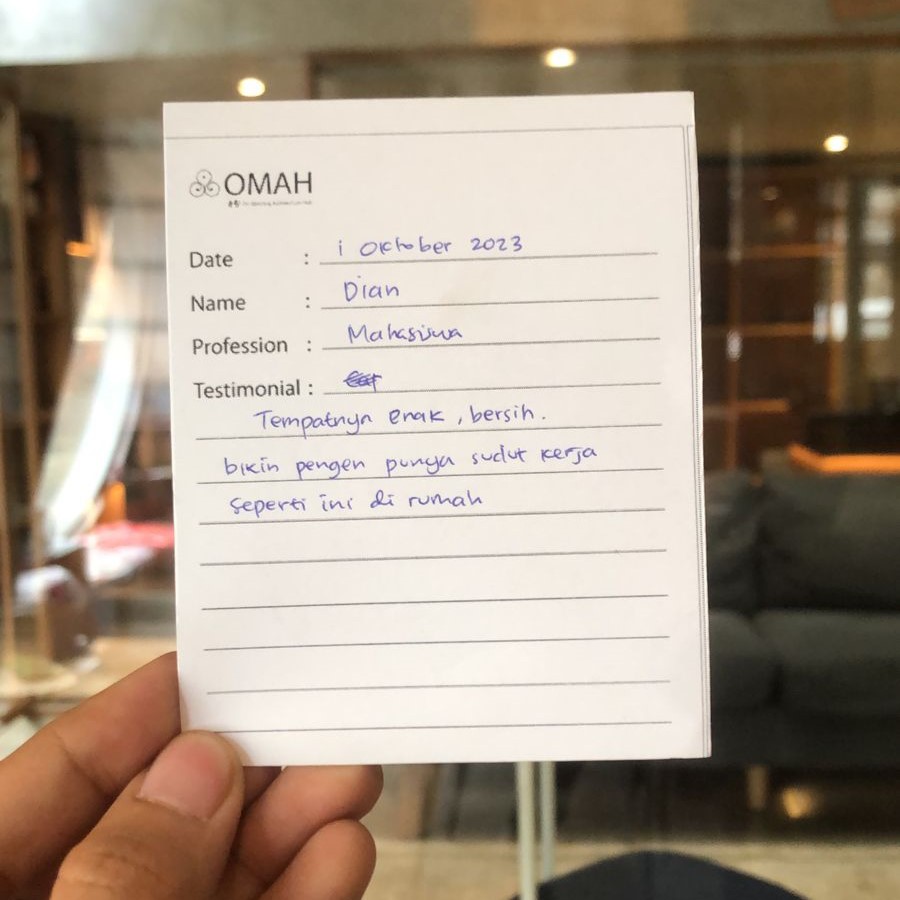 OMAH
Date : 1 Oktober 2023
Name : Dian
Profession : Mahasiswa
Testimonial :
Tempatnya enak, bersih.
bikin pengen punya sudut kerja
seperti ini di rumah